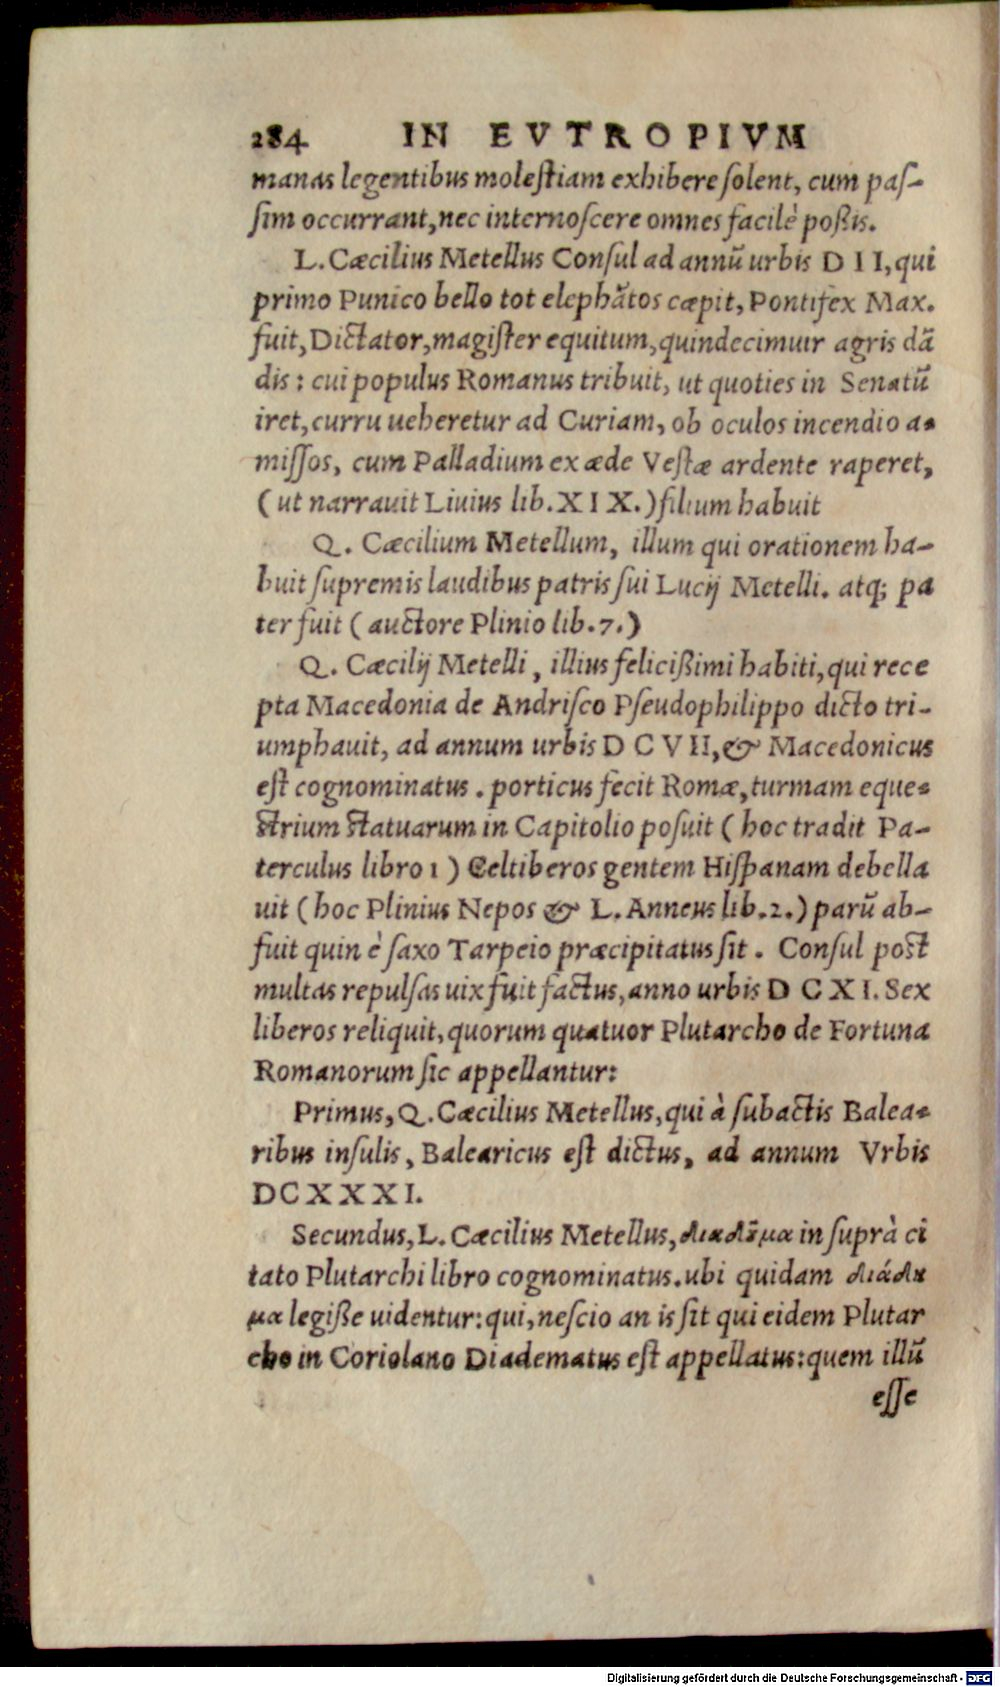 284 IN EVTROPIVM
manas legentibus moleſtiam exhibere ſolent, cum paſ-
ſim occurrant, nec internoſcere omnes facilè poßis.
L. Cæcilius Metellus Conſul ad annũ urbis D I I, qui
primo Punico bello tot elephãtos cæpit, Pontifex Max.
fuit, Dictator, magiſter equitum, quindecimuir agris dã
dis: cui populus Romanus tribuit, ut quoties in Senatũ
iret, curru ueheretur ad Curiam, ob oculos incendio a-
miſſos, cum Palladium ex æde Veſtæ ardente raperet,
(ut narrauit Liuius lib. X I X.) filium habuit
Q. Cæcilium Metellum, illum qui orationem ha-
buit ſupremis laudibus patris ſui Lucij Metelli. atq; pa
ter fuit (auctore Plinio lib. 7.)
Q. Cæcilij Metelli, illius felicißimi habiti, qui rece
pta Macedonia de Andriſco Pſeudophilippo dicto tri-
umphauit, ad annum urbis D C V II, & Macedonicus
eſt cognominatus. porticus fecit Romæ, turmam eque-
ſtrium ſtatuarum in Capitolio poſuit (hoc tradit Pa-
terculus libro 1) Celtiberos gentem Hiſpanam debella
uit (hoc Plinius Nepos & L. Anneus lib. 2.) parũ ab-
fuit quin è ſaxo Tarpeio præcipitatus ſit. Conſul poſt
multas repulſas uix fuit factus, anno urbis D C X I. Sex
liberos reliquit, quorum quatuor Plutarcho de Fortuna
Romanorum ſic appellantur:
Primus, Q. Cæcilius Metellus, qui à ſubactis Balea-
ribus inſulis, Balearicus eſt dictus, ad annum Vrbis
D C X X X I.
Secundus, L. Cæcilius Metellus, διαδῆμα in ſuprà ci
tato Plutarchi libro cognominatus. ubi quidam διάδη
μα legiße uidentur: qui, neſcio an is ſit qui eidem Plutar
cho in Coriolano Diadematus eſt appellatus: quem illũ
eſſe
Digitalisierung gefördert durch die Deutsche Forschungsgemeinschaft - DFG